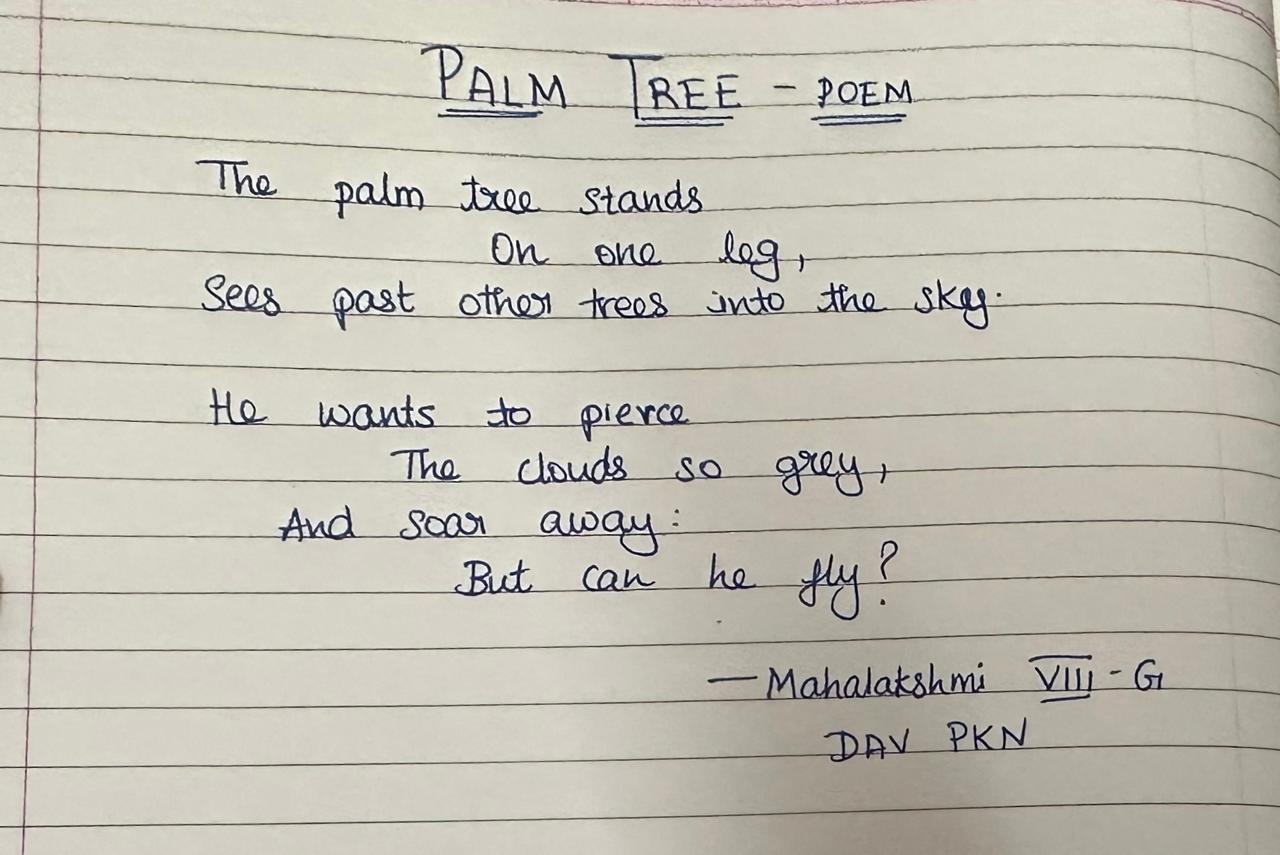 PALM TREE - POEM
The palm tree stands
On one leg,
Sees past other trees into the sky.
He wants to pierce
The clouds so grey,
And soar away:
But can he fly?
— Mahalakshmi VIII - G
DAV PKN